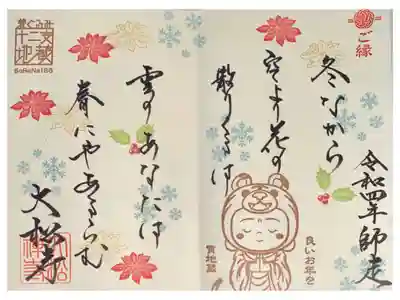 ご縁
令和四年師走
冬なから
空より花の
散りくるは
良いお年を
寅地蔵
雲のあなたは
春にやあるらむ
大松寺